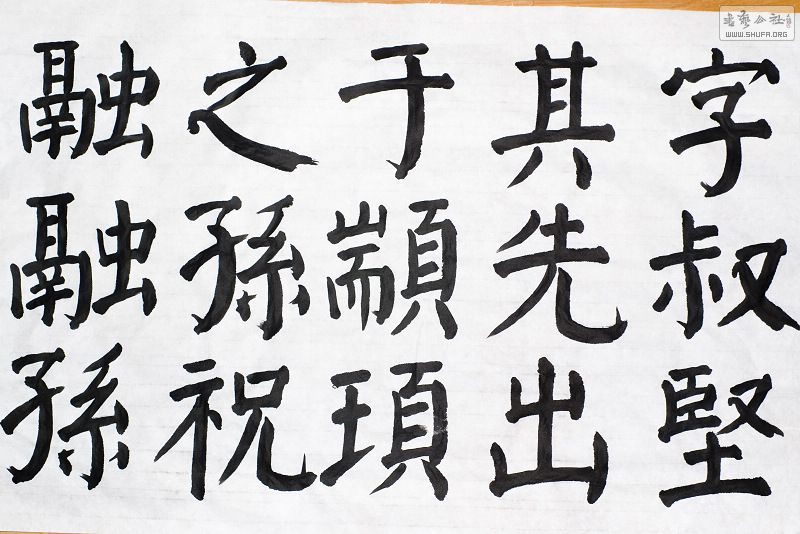 字叔堅
其先出
于顓頊
之孫祝
融融孫
書藝公社
WWW.SHUFA.ORG